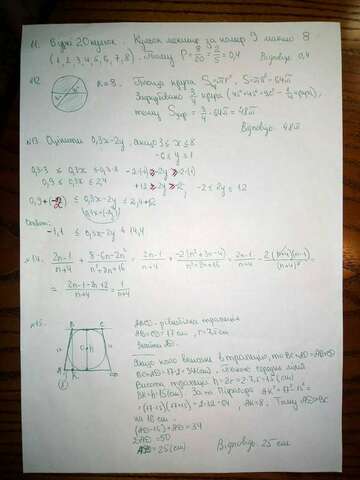 11. В урні 20 кульок. Кульок менших за номер 9 маємо 8
(1, 2, 3, 4, 5, 6, 7, 8). Тому P = 8/20 = 2/5 = 0,4
Відповідь 0,4
№12. R = 8. Площа круга S = πr². S = π·8² = 64π
Зафарбовано 3/4 круга
тому S = 3/4 · 64π = 48π
Відповідь 48π
№13. Оцінити 0,3x - 2y, якщо 3 ≤ x ≤ 8
-6 ≤ y ≤ 1
0,3·3 ≤ 0,3x ≤ 0,3·8
0,9 ≤ 0,3x ≤ 2,4
-2 ≤ -2y ≤ 12
0,9 + (-2) ≤ 0,3x - 2y ≤ 2,4 + 12
-1,1 ≤ 0,3x - 2y ≤ 14,4
№14. (2n-1)/(n+4) + (8-6n-2n²)/(n²+8n+16) = (2n-1)/(n+4) + (-2(n²+3n-4))/(n²+8n+16) = (2n-1)/(n+4) - (2(n+4)(n-1))/(n+4)² =
= (2n-1-2n+2)/(n+4) = 1/(n+4)
№15.
ABCD - рівнобічна трапеція
AB = CD = 17 см, r = 7,5 см
Якщо коло вписане в трапецію, то BC + AD = AB + CD
BC + AD = 17·2 = 34 (см)
Висота трапеції h = 2r = 2·7,5 = 15 (см)
BK = h = 15 (см). За т. Піфагора AK² = 17² - 15² =
= (17-15)(17+15) = 2·32 = 64, AK = 8. Тому AD > BC
на 16 см.
(AD-16) + AD = 34
2AD = 50
AD = 25 (см)
Відповідь. 25 см